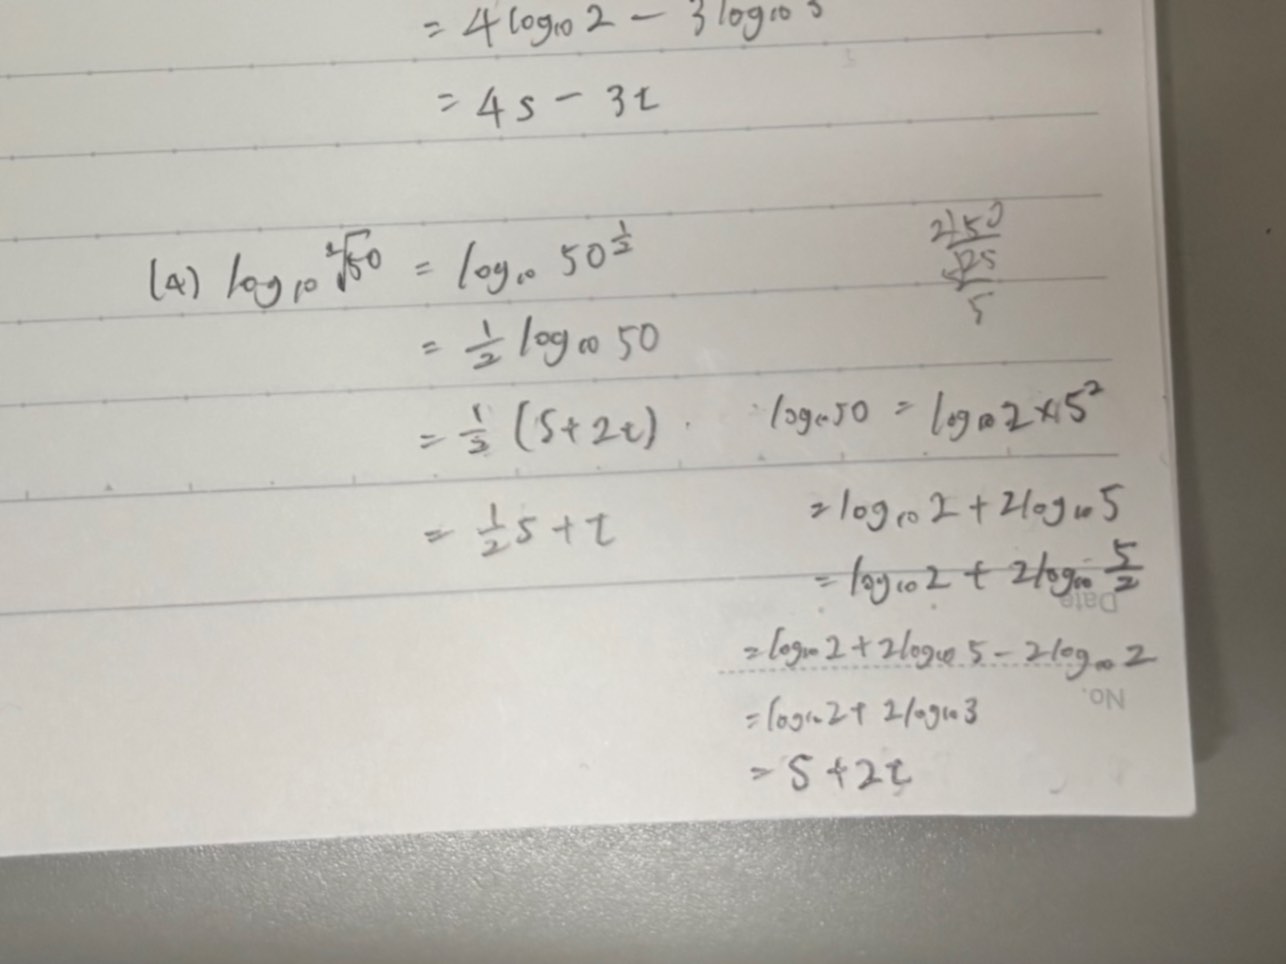 = 4 log₁₀ 2 − 3 log₁₀ 3
= 4s − 3t
(4) log₁₀ ²√50 = log₁₀ 50^½
= ½ log₁₀ 50
= ½ (s + 2t).
= ½ s + t
2)50
25
5
log₁₀ 50 = log₁₀ 2 × 5²
= log₁₀ 2 + 2 log₁₀ 5
= log₁₀ 2 + 2 log₁₀ 5/2
= log₁₀ 2 + 2 log₁₀ 5 − 2 log₁₀ 2
= log₁₀ 2 + 2 log₁₀ 3
= s + 2t
Date
No.